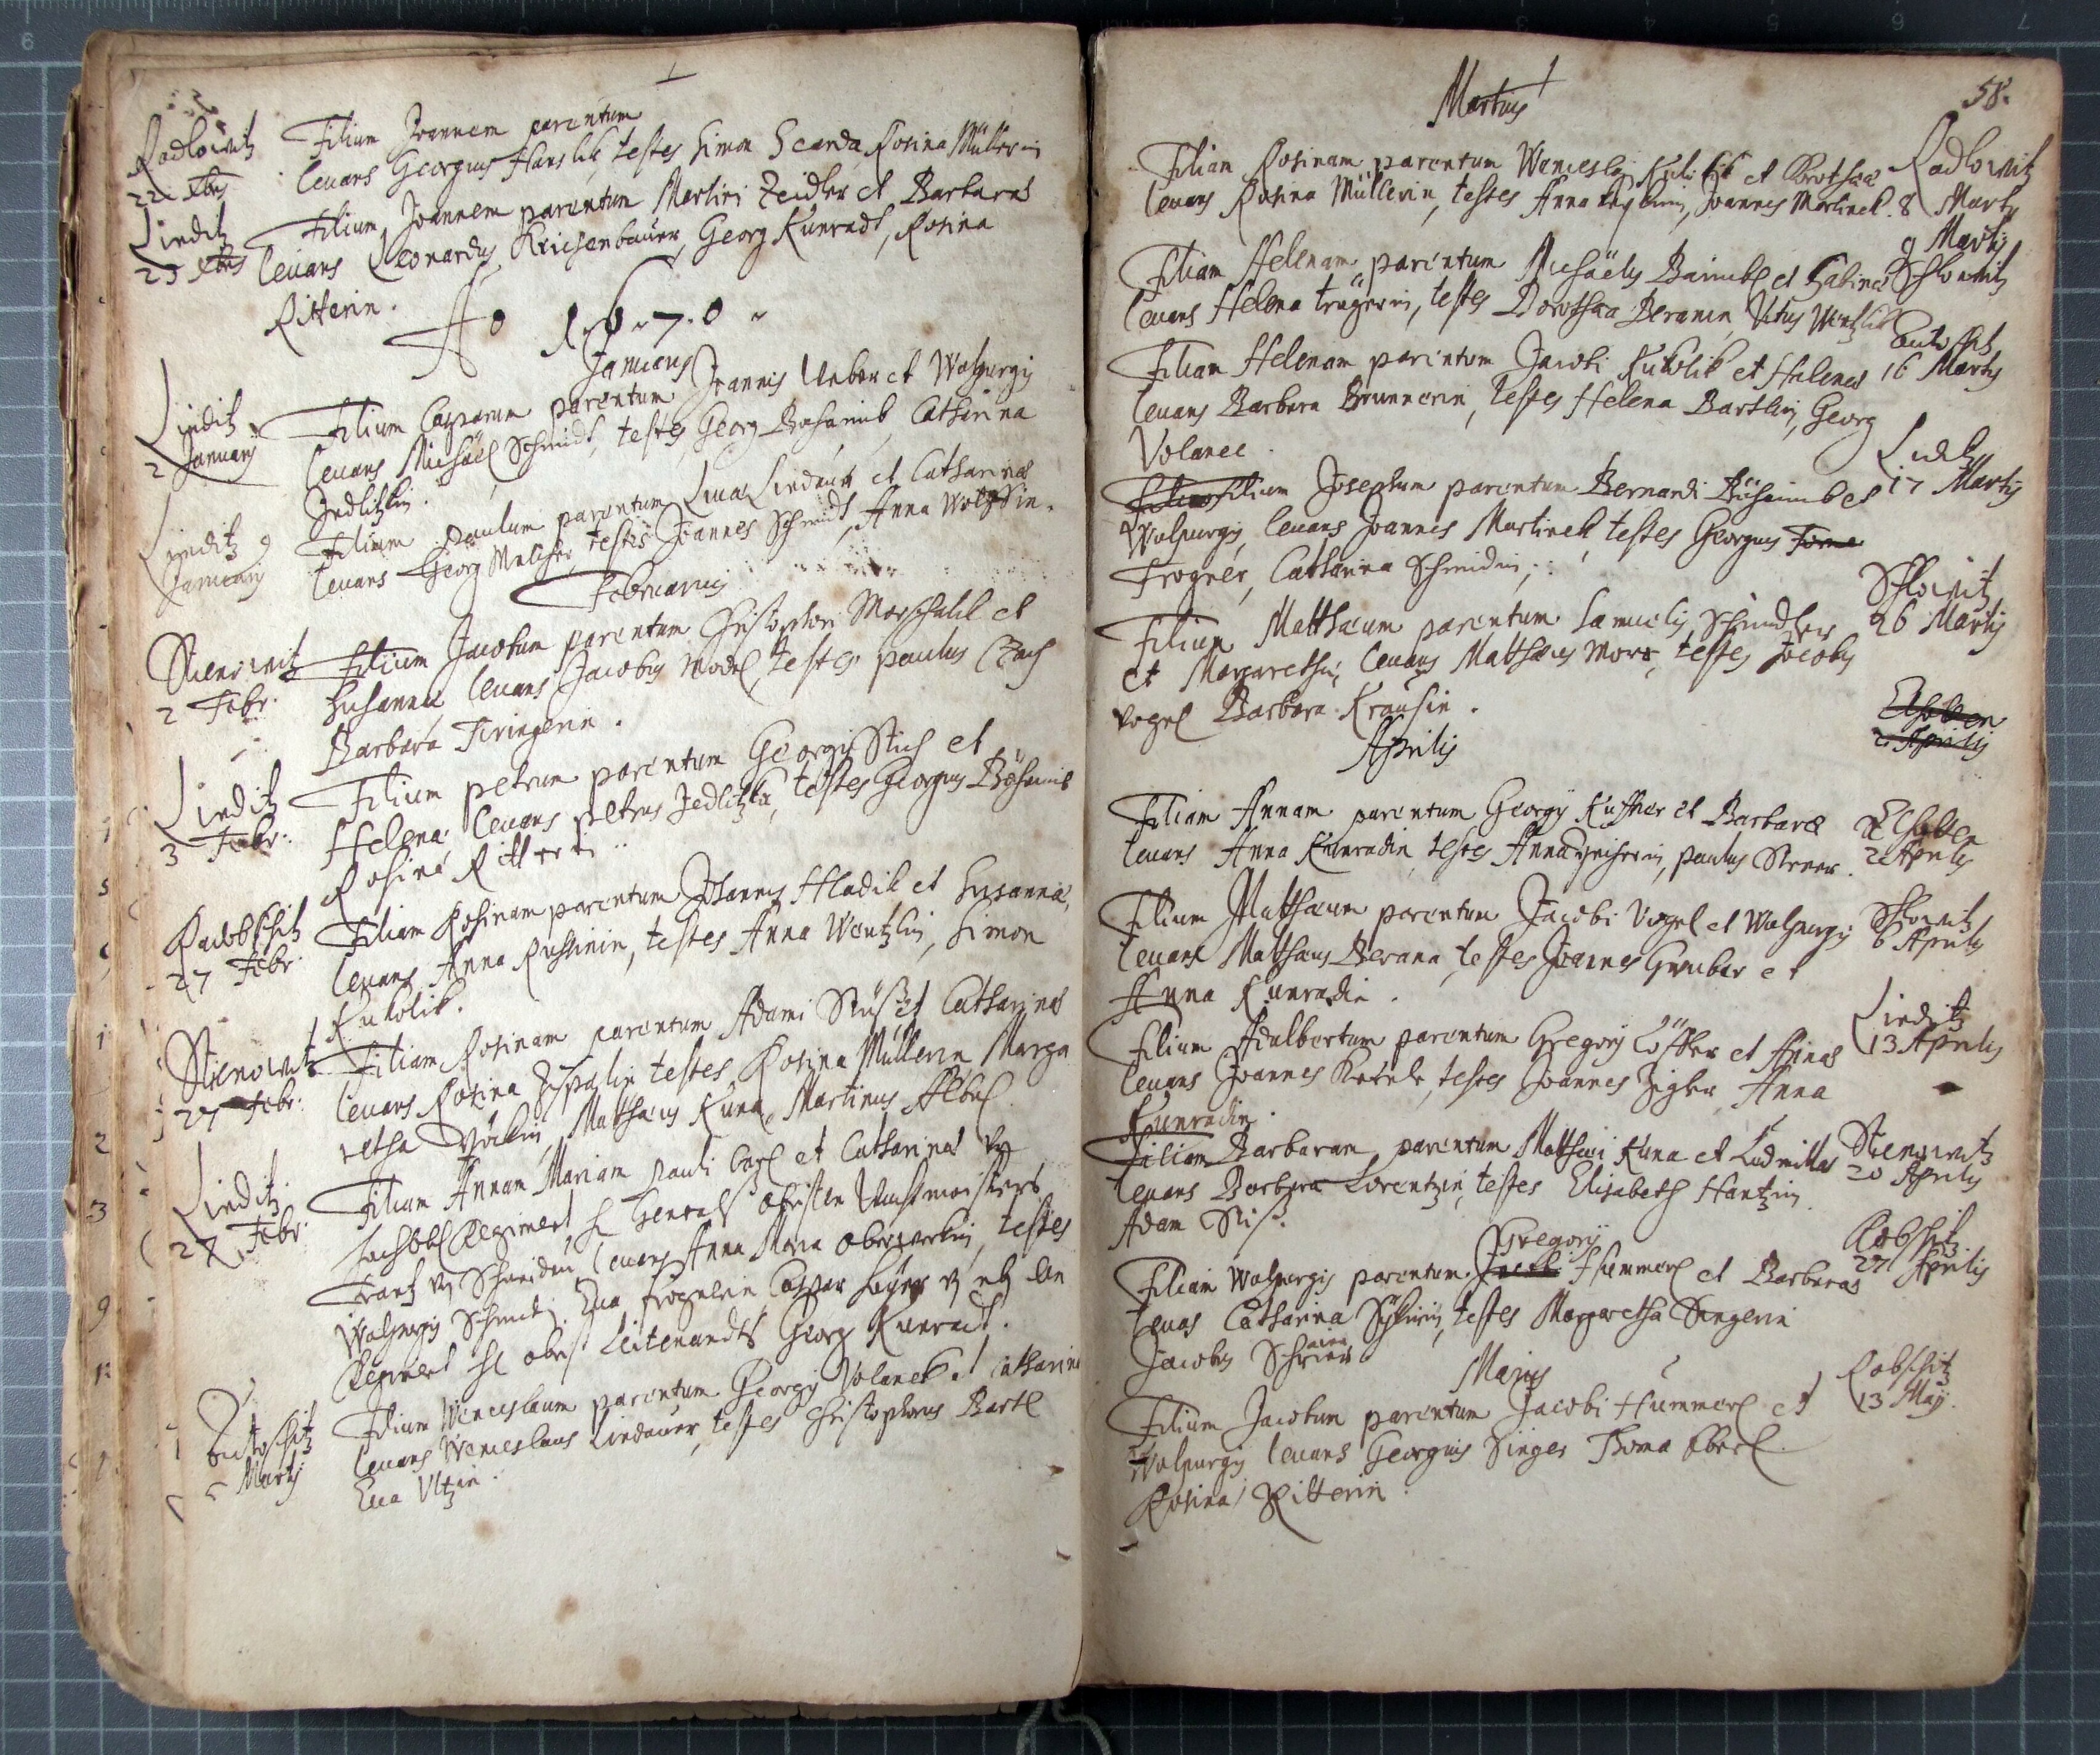 Radlowitz
22 Xbris
Filium Joannem parentum
levans Georgius Hanslik, testes Simon Scanda Rosina Müllerin
Lieditz
23 Xbris
Filium Joannem parentum Martini Zeidler et Barbarae
levans Leonardus Kriesenbauer, Georg Kunradt, Rosina
Ritterin.
Ao 1670
Januarius
Lieditz
2 Januarij
Filium Casparum parentum Joannis Ueber et Walpurgis
levans Michaël Schmidt, testes Georg Böhaimb Catharina
Jedlitzkin.
Lieditz 9
Januarij
Filium Paulum parentum Lucae Lindauer et Catharinae
levans Georg Melcher testes Joannes Schmidt, Anna
Februarius
Stienowitz
2 Febr.
Filium Jacobum parentum Christophori Marschalik et
Susannae levans Jacobus Model, testes Paulus
Barbara Feringerin.
Lieditz
3 Febr:
Filium Petrum parentum Georgij Stich et
Helenae, levans Petrus Jedlitzka, testes Georgius Böhaimb
Rosina Ritterin
Radobschitz
27 Febr.
Filiam Rosinam parentum Johannis Hladik et Susannae,
levans Anna, testes Anna Wentzlin, Simon
Kukolik.
Stienowitz
27 Febr:
Filiam Rosinam parentum Adami Stiß et Catharinae
levans Rosina testes Rosina Müllerin Marga
retha Matthaeus Kuna, Martinus
Lieditz
27 Febr
Filiam Annam Mariam Pauli Carl et Catharinae
Regiment H General Obristen Wachtmeisters
Frantz levans Anna Maria testes
Walpurgis Schmidt. Eva Frognerin Caspar
Regiment H obrist Leitenandts Georg Kunradt.
Butoschitz
Martij
Filium Wenceslaum parentum Georgij Volanek et Catharinae
levans Wenceslaus Lindauer, testes Christophorus Bartl
Eva Ultzin.
58.
Martius
Filiam Rosinam parentum Wenceslaj et Dorothaeae
levans Rosina Müllerin, testes Anna, Joannes Martinek.
Radlowitz
8 Martij
Filiam Helenam parentum Michaëlis Baimbl et Sabinae
levans Helena Trägerin, testes Dorothaea Beranin, Vitus Wentzlik
9 Martij
Schlowitz
Filiam Helenam parentum Jacobi Kukolik et Helenae
levans Barbara Brunnerin, testes Helena Bartlin, Georg
Volanec.
Butoschitz
16 Martij
Filium Josephum parentum Bernardi Böhaimb et
Walpurgis, levans Joannes Martinek testes Georgius
Frogner, Catharina Schmidin,
Liditz
17 Martij
Filium Matthaeum parentum Samuelis Schindler
et Margarethae, levans Matthaeus, testes Jacobus
Vogel Barbara Krausin.
Schlowitz
26 Martij
Aprilis
Elhotten
2 Aprilis
Filiam Annam parentum Georgij Kuffner et Barbarae
levans Anna Kunradin, testes Anna, Paulus
Elhotten
2 Aprilis
Filium Matthaeum parentum Jacobi Vogel et Walpurgis
levans Matthaeus Berana, testes Joannes Gruber et
Anna Kunradin.
Schlowitz
6 Aprilis
Filium Adalbertum parentum Gregorij Löffler et Annae
levans Joannes, testes Joannes Zigler, Anna
Kunradin.
Lieditz
13 Aprilis
Filiam Barbaram parentum Matthaei Kuna et Ludmillae
levans Barbara Lorentzin, testes Elisabeth Hantzin
Adam Stiß.
Stienowitz
20 Aprilis
Gregorij
Filiam Walpurgis parentum Jacobi Hummerl et Barbarae
levas Catharina, testes Margaretha Sengerin
Jacobus
Robschitz
27 Aprilis
Majus
Filium Jacobum parentum Jacobi Hummerl et
Walpurgis levans Georgius Singer Thoma Eberl.
Rosina Ritterin.
Robschitz
13 Maij.